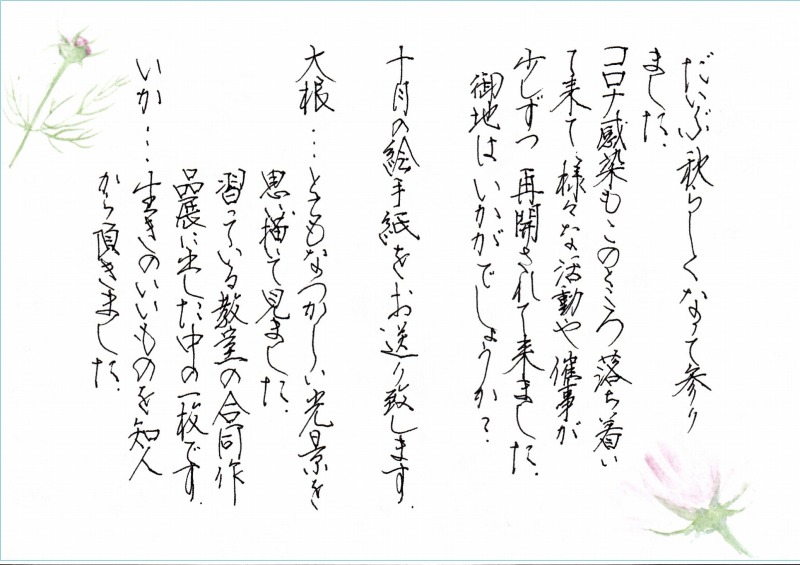 だいぶ秋らしくなって参り
ました.
コロナ感染もこのところ落ち着い
て来て様々な活動や催事が
少しずつ再開されて来ました.
御地はいかがでしょうか?
十月の絵手紙をお送り致します.
大根...とてもなつかしい光景を
思い描いて見ました.
習っている教室の合同作
品展に出した中の一枚です.
いか...生きのいいものを知人
から頂きました.